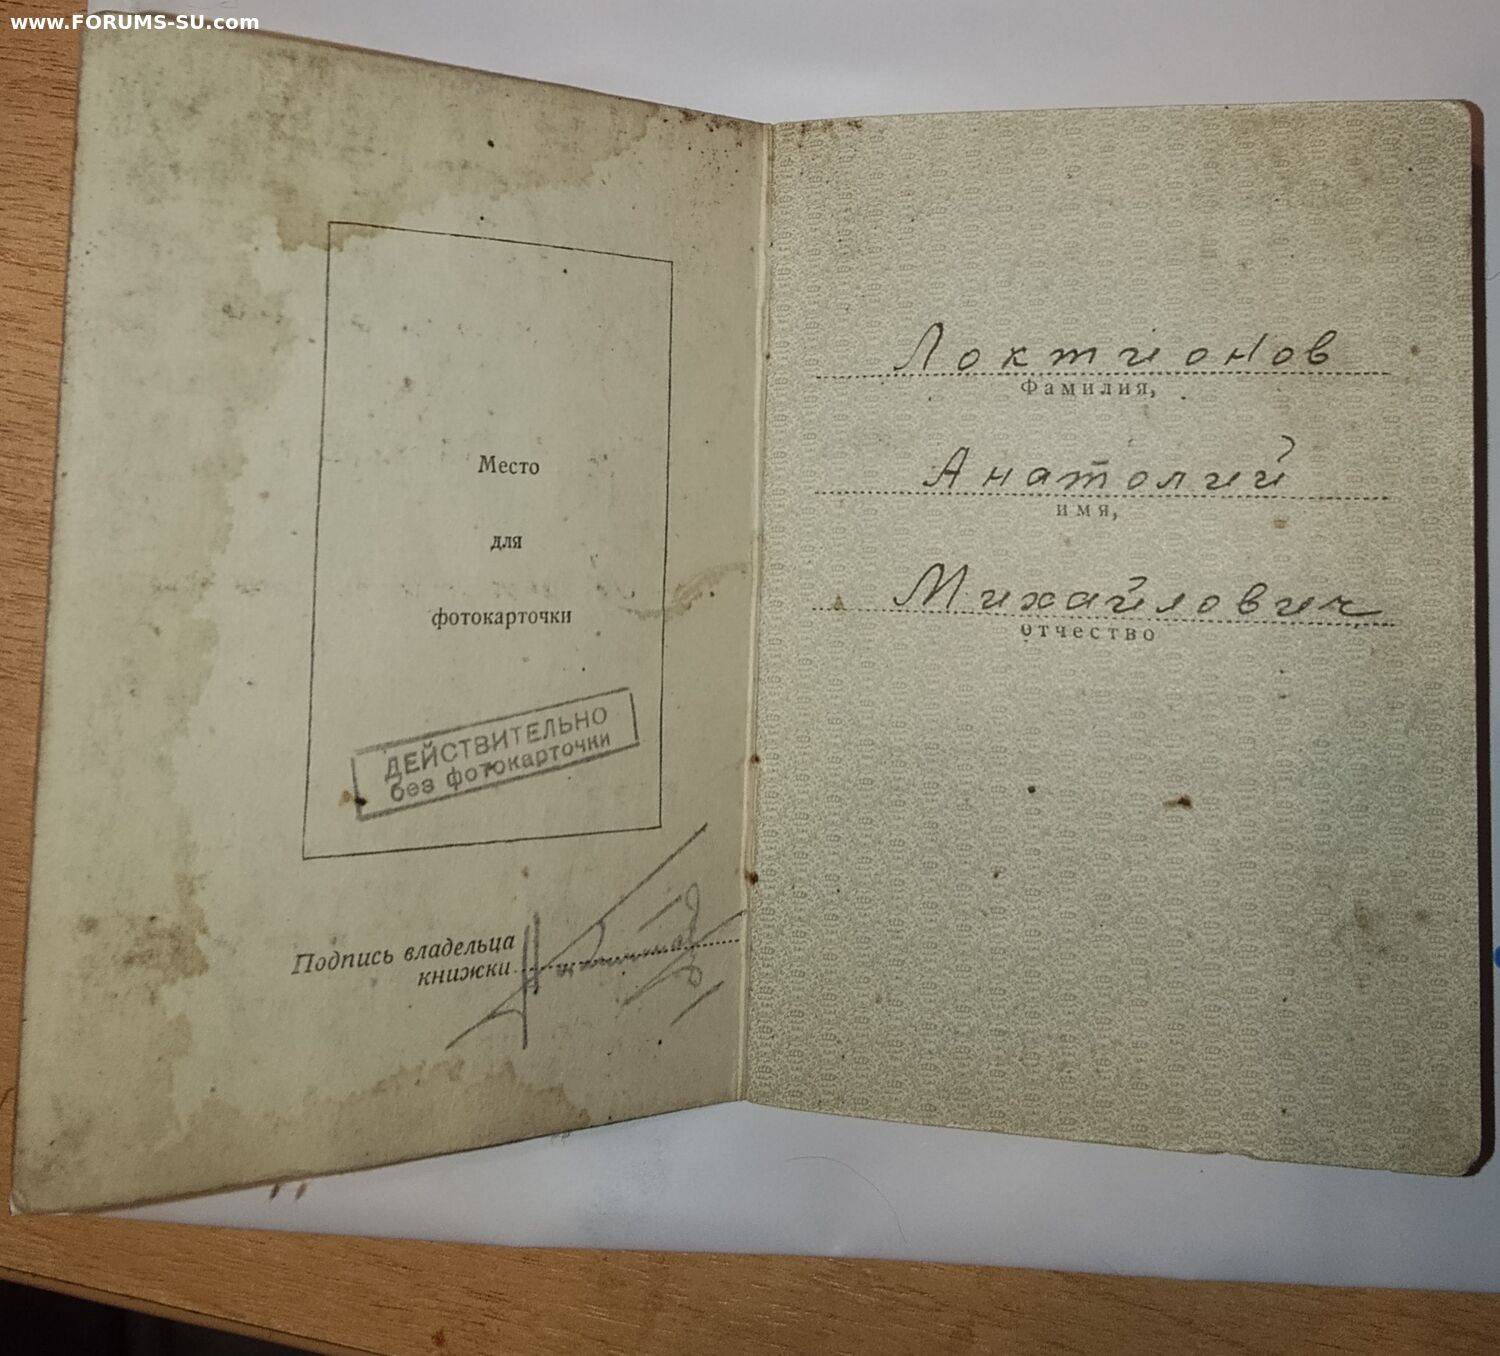 www.FORUMS-SU.com
Место
для
фотокарточки
ДЕЙСТВИТЕЛЬНО
без фотокарточки
Подпись владельца
книжки
Локтионов
Фамилия,
Анатолий
имя,
Михайлович
отчество